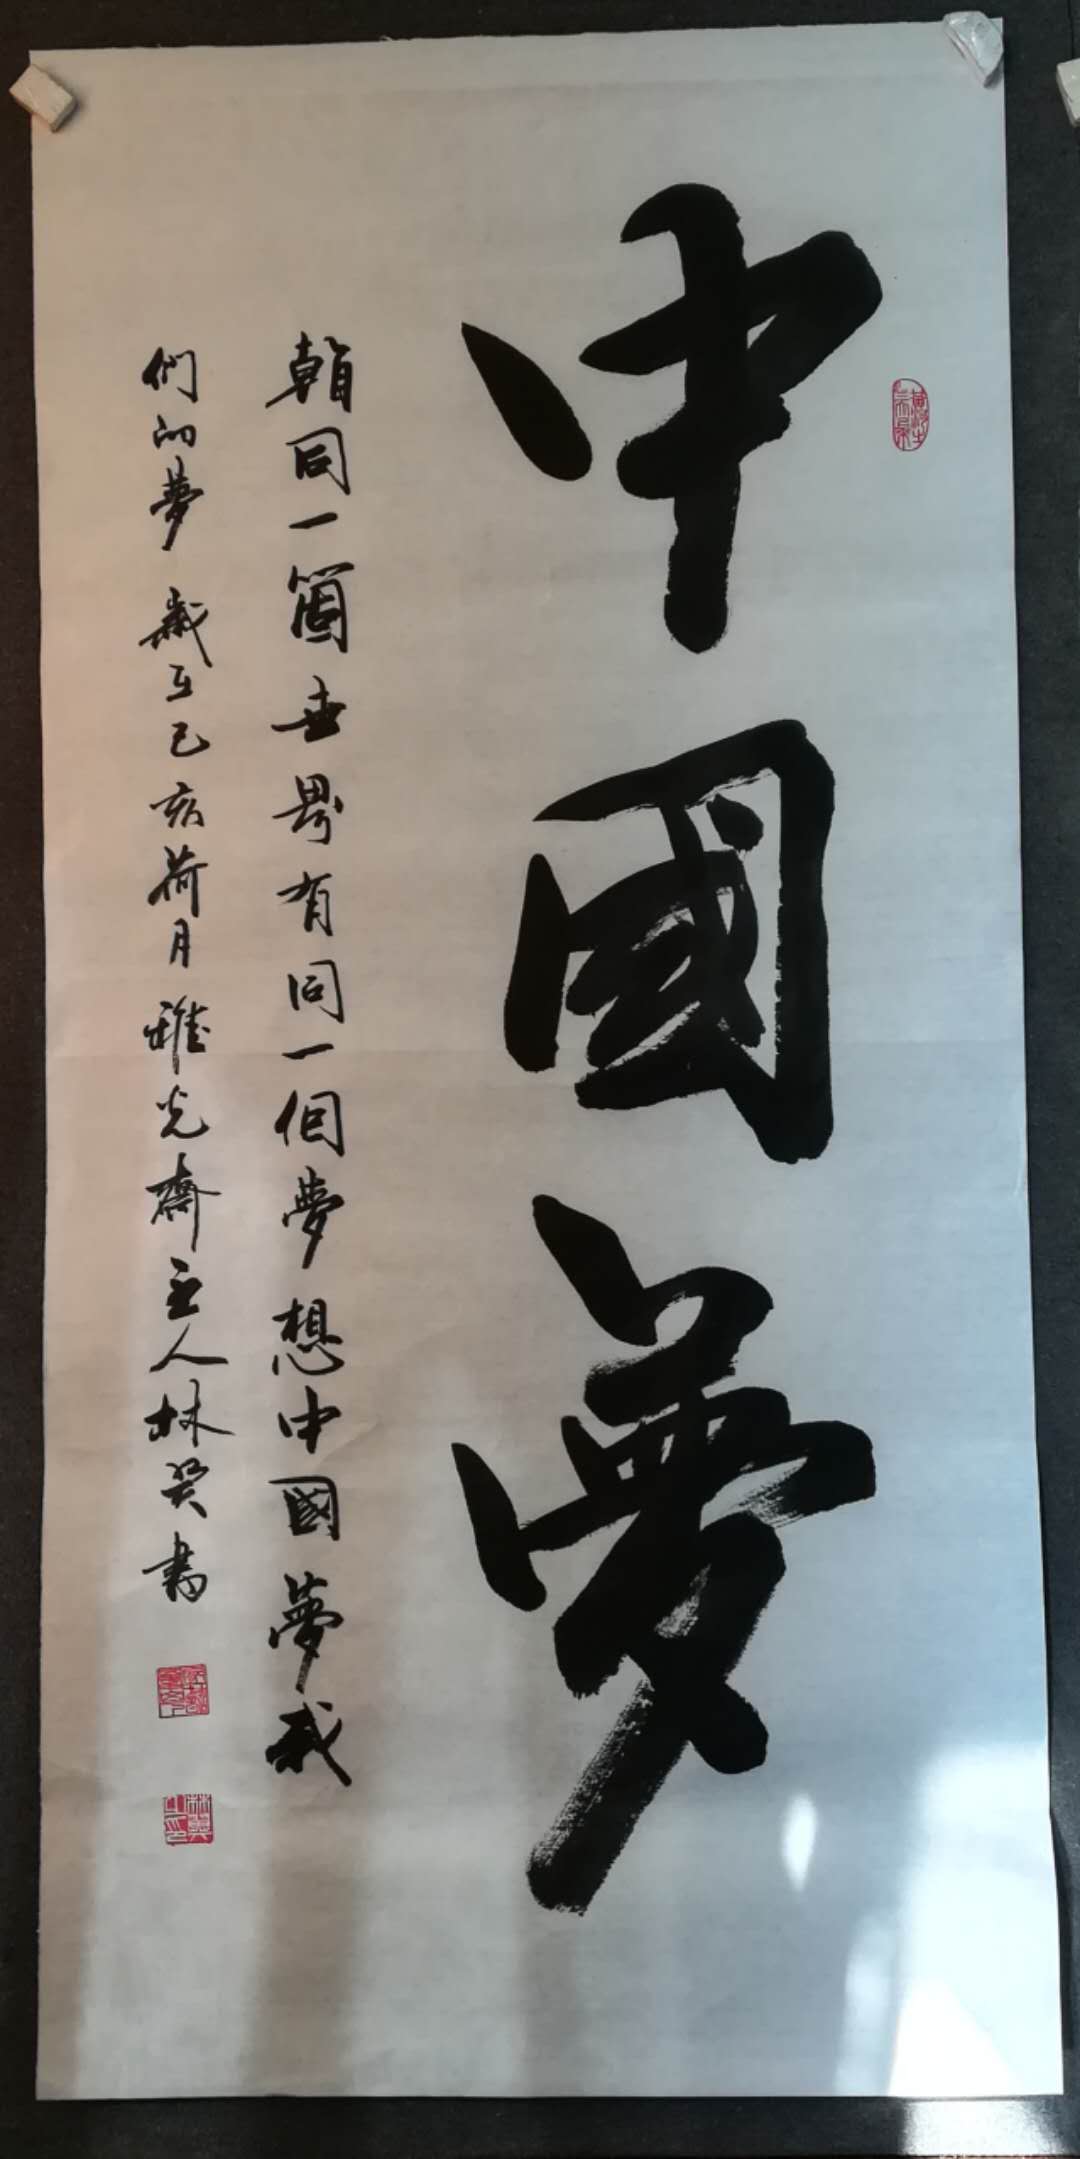 中國夢
同一箇世界有同一個夢想中國夢我
們的夢 歲在己亥荷月雅光齋主人林書